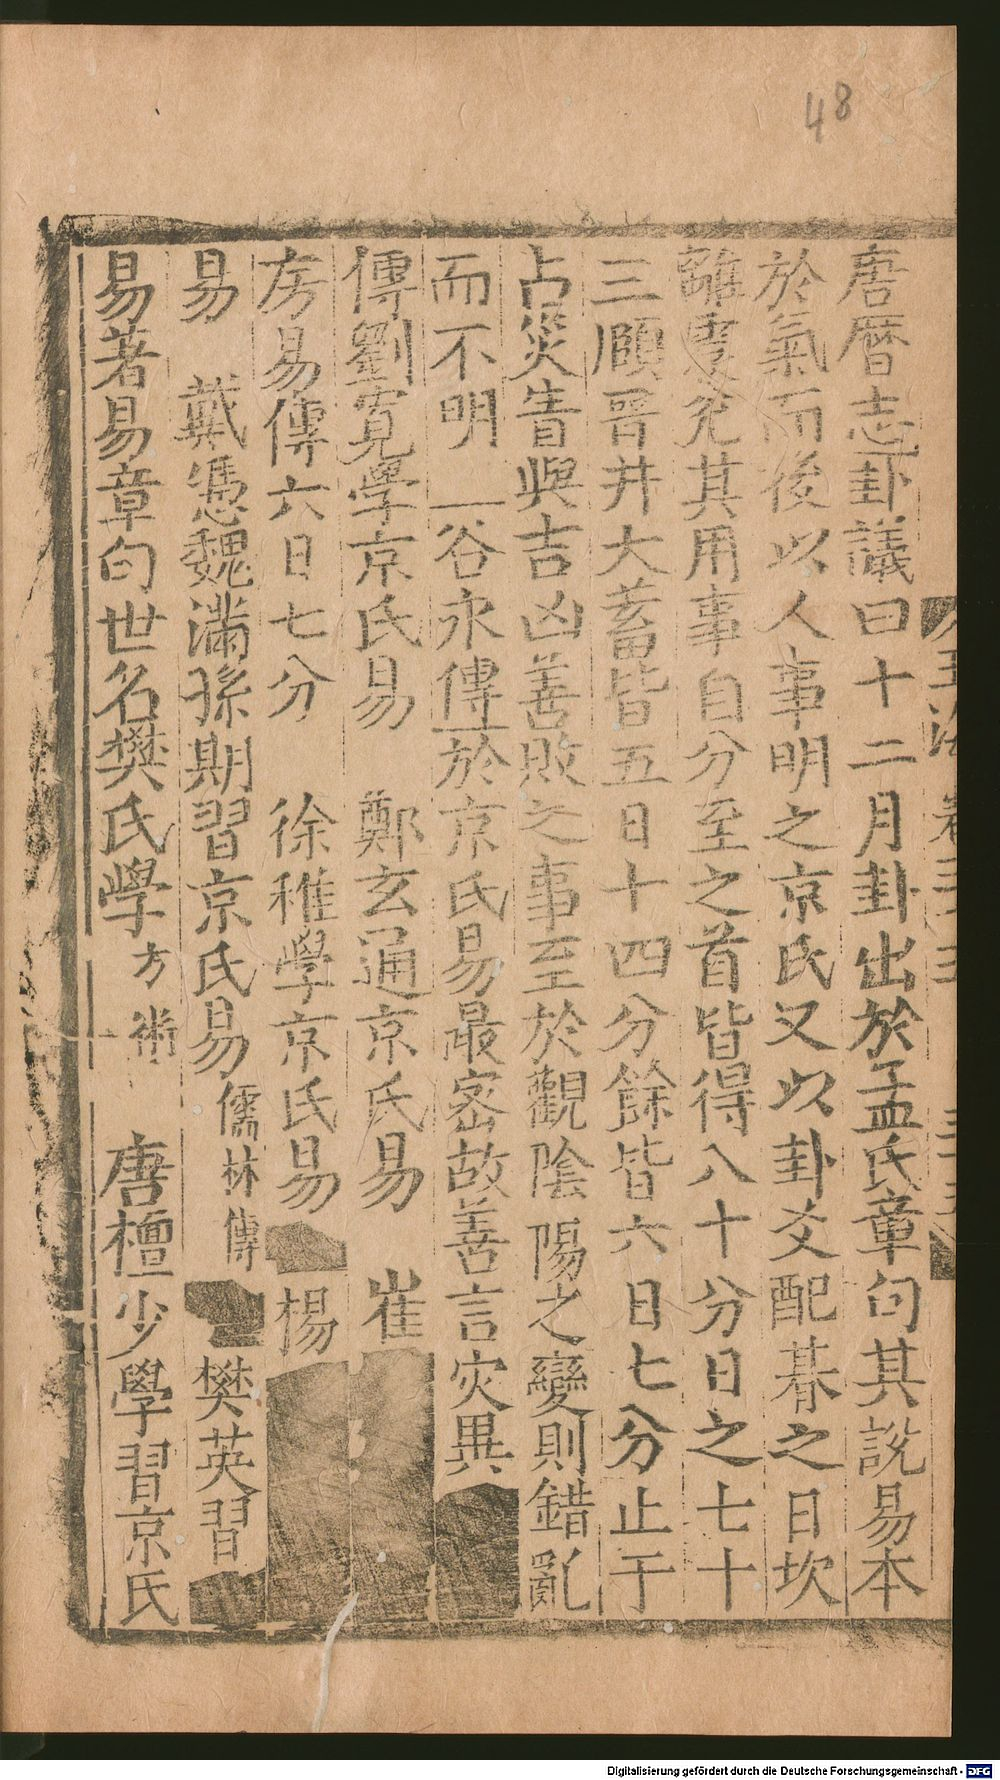 48
唐曆志卦議曰十二月卦出於孟氏章句其說易本
於氣而後以人事明之京氏又以卦爻配朞之日坎
離震兊其用事自分至之首皆得八十分日之七十
三頥晉井大畜皆五日十四分餘皆六日七分止于
占災眚與吉凶善敗之事至於觀陰陽之變則錯亂
而不明 谷永傳於京氏易最宻故善言灾異
傳劉寛學京氏易 鄭玄通京氏易 崔
房易傳六日七分 徐稚學京氏易 楊
易 戴憑魏滿孫期習京氏易儒林傳 樊英習
易著易章句世名樊氏學方術 唐檀少學習京氏
Digitalisierung gefördert durch die Deutsche Forschungsgemeinschaft - DFG